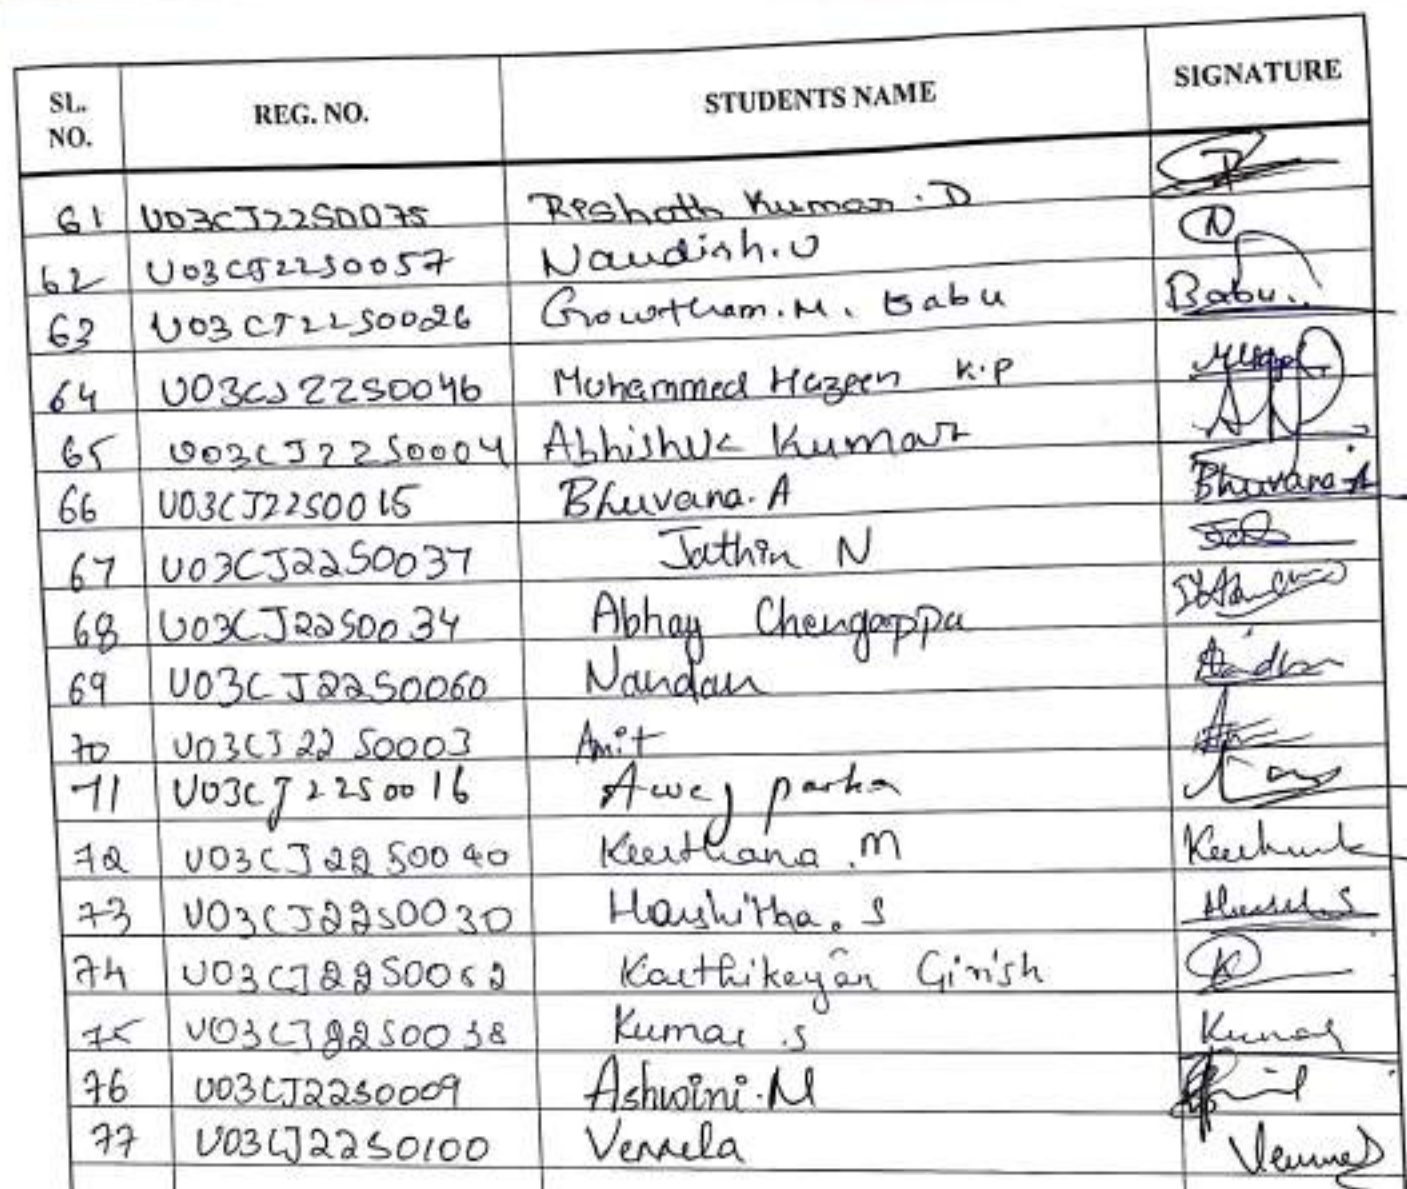 SL. NO. REG. NO. STUDENTS NAME SIGNATURE
61 U03CJ22S0075 Rishath Kumar. D
62 U03CJ22S0057 Nandish. U N
63 U03CJ22S0026 Growtham. M. Babu Babu..
64 U03CJ22S0046 Muhammed Hazeen K.P
65 U03CJ22S0004 Abhishek Kumar
66 U03CJ22S0015 Bhuvana. A Bhuvana. A
67 U03CJ22S0037 Jathin N
68 U03CJ22S0034 Abhay Chengappa
69 U03CJ22S0060 Nandan
70 U03CJ22S0003 Amit
71 U03CJ22S0016 Awej parha
72 U03CJ22S0040 Keerthana . M
73 U03CJ22S0030 Harshitha. S
74 U03CJ22S0052 Karthikeyan Girish K
75 U03CJ22S0038 Kumar .S Kumar
76 U03CJ22S0009 Ashwini. M
77 U03CJ22S0100 Vennela